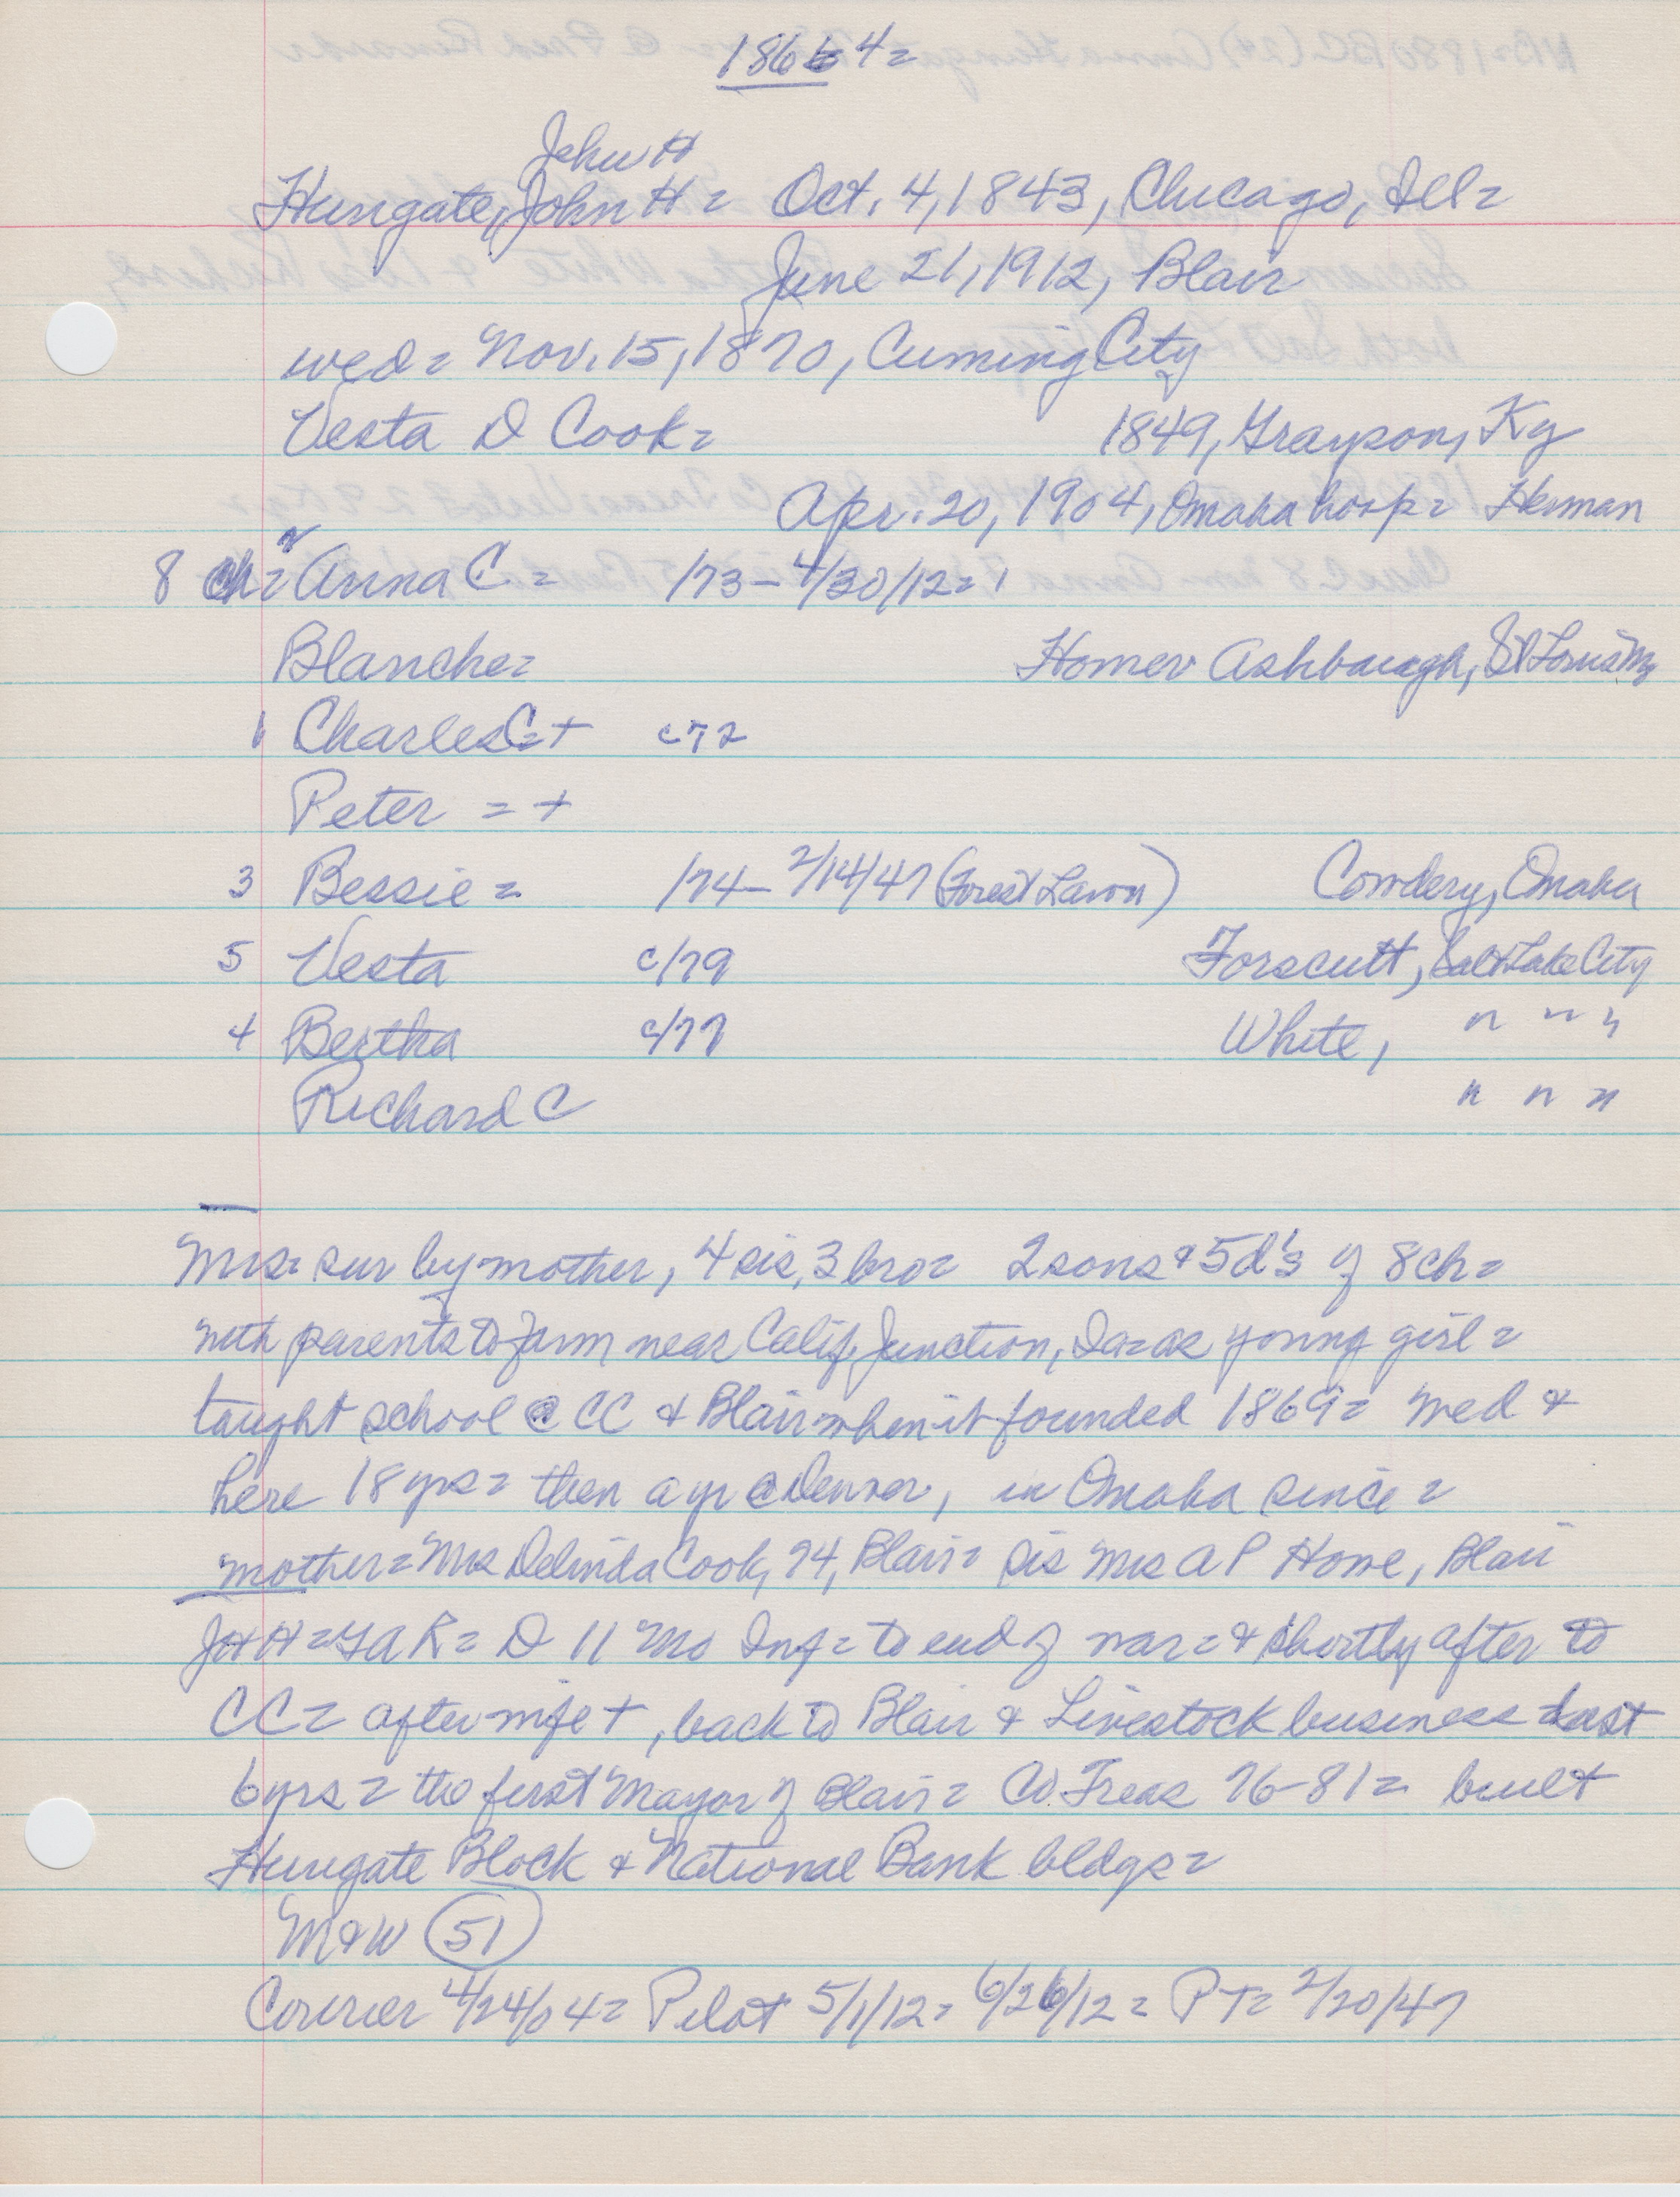 1866 4=
John H
Hungate, John H = Oct. 4, 1843, Chicago, Ill=
June 21, 1912, Blair
wed= Nov. 15, 1870, Cuming City
Vesta D Cook= 1849, Grayson, Ky
Apr. 20, 1904, Omaha hosp= Herman
2
8 ch= Anna C. = /73 - 4/30/12=
Blanche= Homer Ashbaugh, St Louis Mo
1 Charles C=+ c72
Peter = +
3 Bessie = /74 - 2/14/47 (Forest Lawn) Cowdery, Omaha
5 Vesta c/79 Forscutt, Salt Lake City
4 Bertha c/77 White, " " "
Richard C " " "
Mrs= sur by mother, 4 sis, 3 bro= 2 sons & 5 d's of 8 ch=
with parents to farm near Calif. Junction, Ia= as young girl=
taught school @ CC & Blair when it founded 1869= wed &
here 18 yrs= then a yr @ Denver, in Omaha since=
mother= Mrs Delinda Cook, 74, Blair= sis Mrs A P Howe, Blair
JHH=GAR= D 11 Mo Inf= to end of war= & shortly after to
CC= after wife +, back to Blair & Livestock business last
6 yrs= the first Mayor of Blair= Co. Treas 76-81= built
Hungate Block & National Bank bldgs=
M&W (51)
Courier 4/24/04= Pilot 5/1/12= 6/26/12= PT= 2/20/47